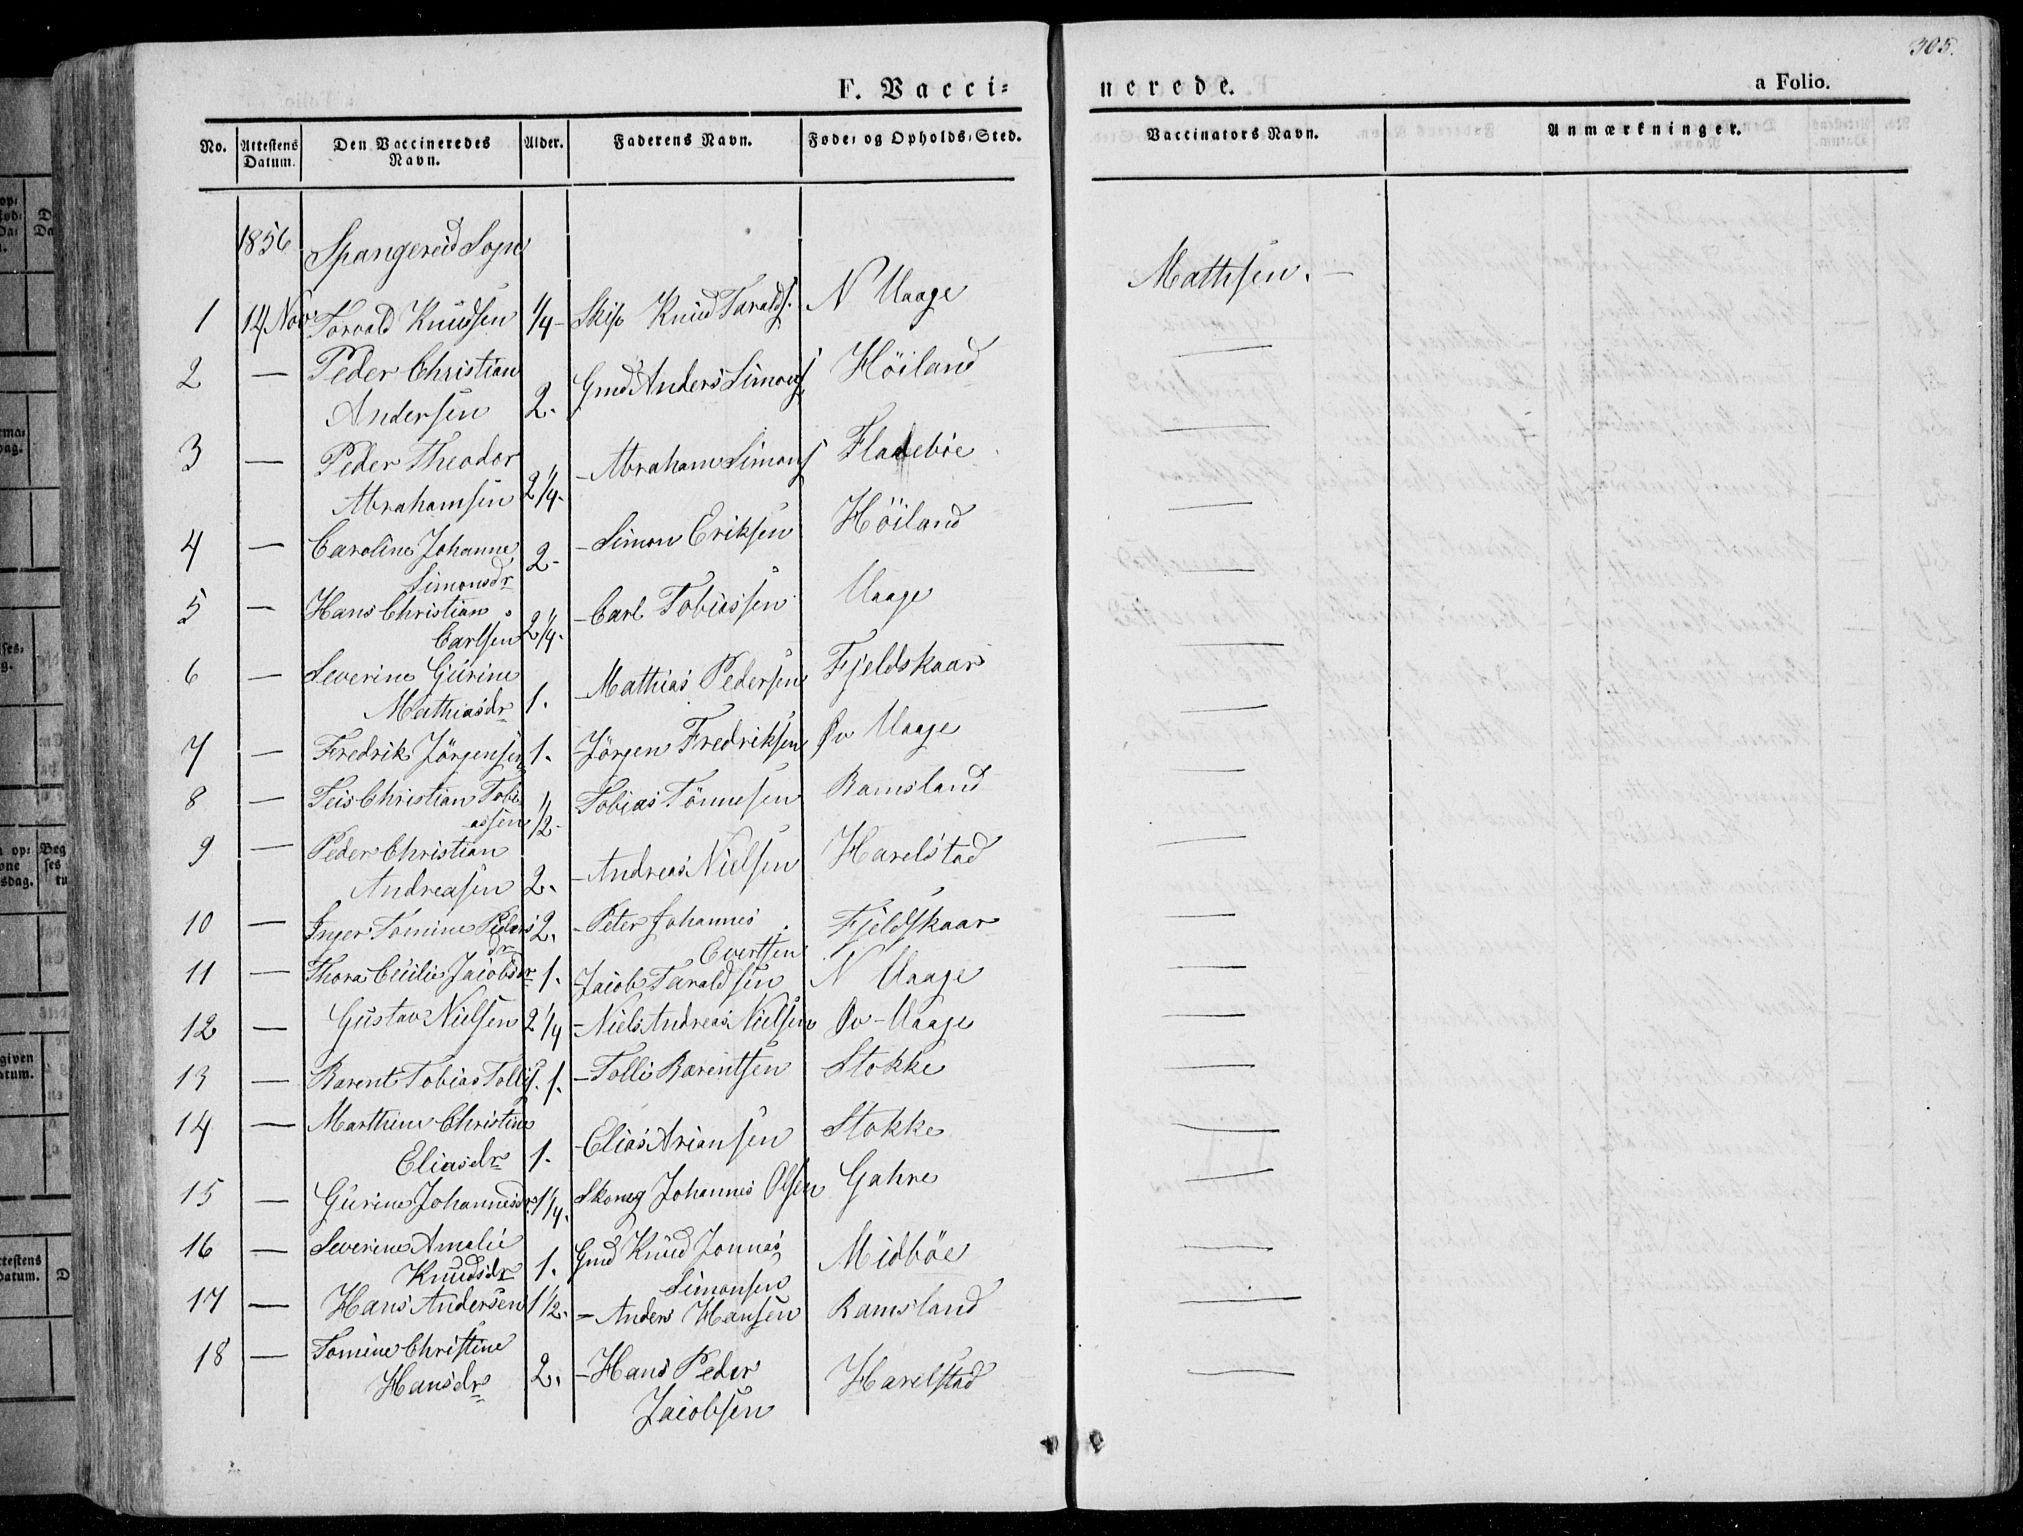 305.
F. Vacci=
nerede.
a Folio.
No. Attestens Datum. Den Vaccineredes Navn. Alder. Faderens Navn. Føde= og Opholds=Sted. Vaccinators Navn. Anmærkninger.
1856 Spangereid Sogn
1 14 Nov Torvald Knudsen 1/4 - Skip Knud Taralds. N Uaage Mathisen. —
2 — Peder Christian Andersen 2. Gmd Anders Simons Höiland —
3 — Peder Theodor Abrahamsen 2 1/4. - Abraham Simons Fladebøe —
4 — Caroline Johanne Simonsdr 2 - - Simon Eriksen Höiland —
5 — Hans Christian Carlsen 2 1/4. - Carl Tobiassen Uaage —
6 — Severine Gurine Mathiasdr 1. - Mathias Pedersen Fjeldskaar —
7 — Fredrik Jörgensen 1. - Jörgen Fredriksen Øv Uaage —
8 — Teis Christian Tobiassen 1/2 - Tobias Tönnesen Ramsland —
9 — Peder Christian Andreasen 2. - Andreas Nielsen Harelstad —
10 — Inger Tomine Pedersdr 2. - Peter Johannes Evertsen Fjeldskaar —
11 — Thora Cecilie Jacobsdr 1. - Jacob Taraldsen N Uaage —
12 — Gustav Nielsen 2 1/4 - Niels Andreas Nielsen Øv-Uaage —
13 — Barent Tobias Tollis. 1. - Tolli Barentsen Stokke —
14 — Marthine Christine Eliasdr 1. - Elias Ariansen Stokke —
15 — Gurine Johannesdr 1/4. Skomg Johannes Olsen Gahre —
16 — Severine Amalie Knudsdr 1. Gmd Knud Jonnas Simonsen Midböe —
17 — Hans Andersen 1 1/2. - Anders Hansen Ramsland —
18 — Tomine Christine Hansdr 2. - Hans Peder Jacobsen Harelstad —